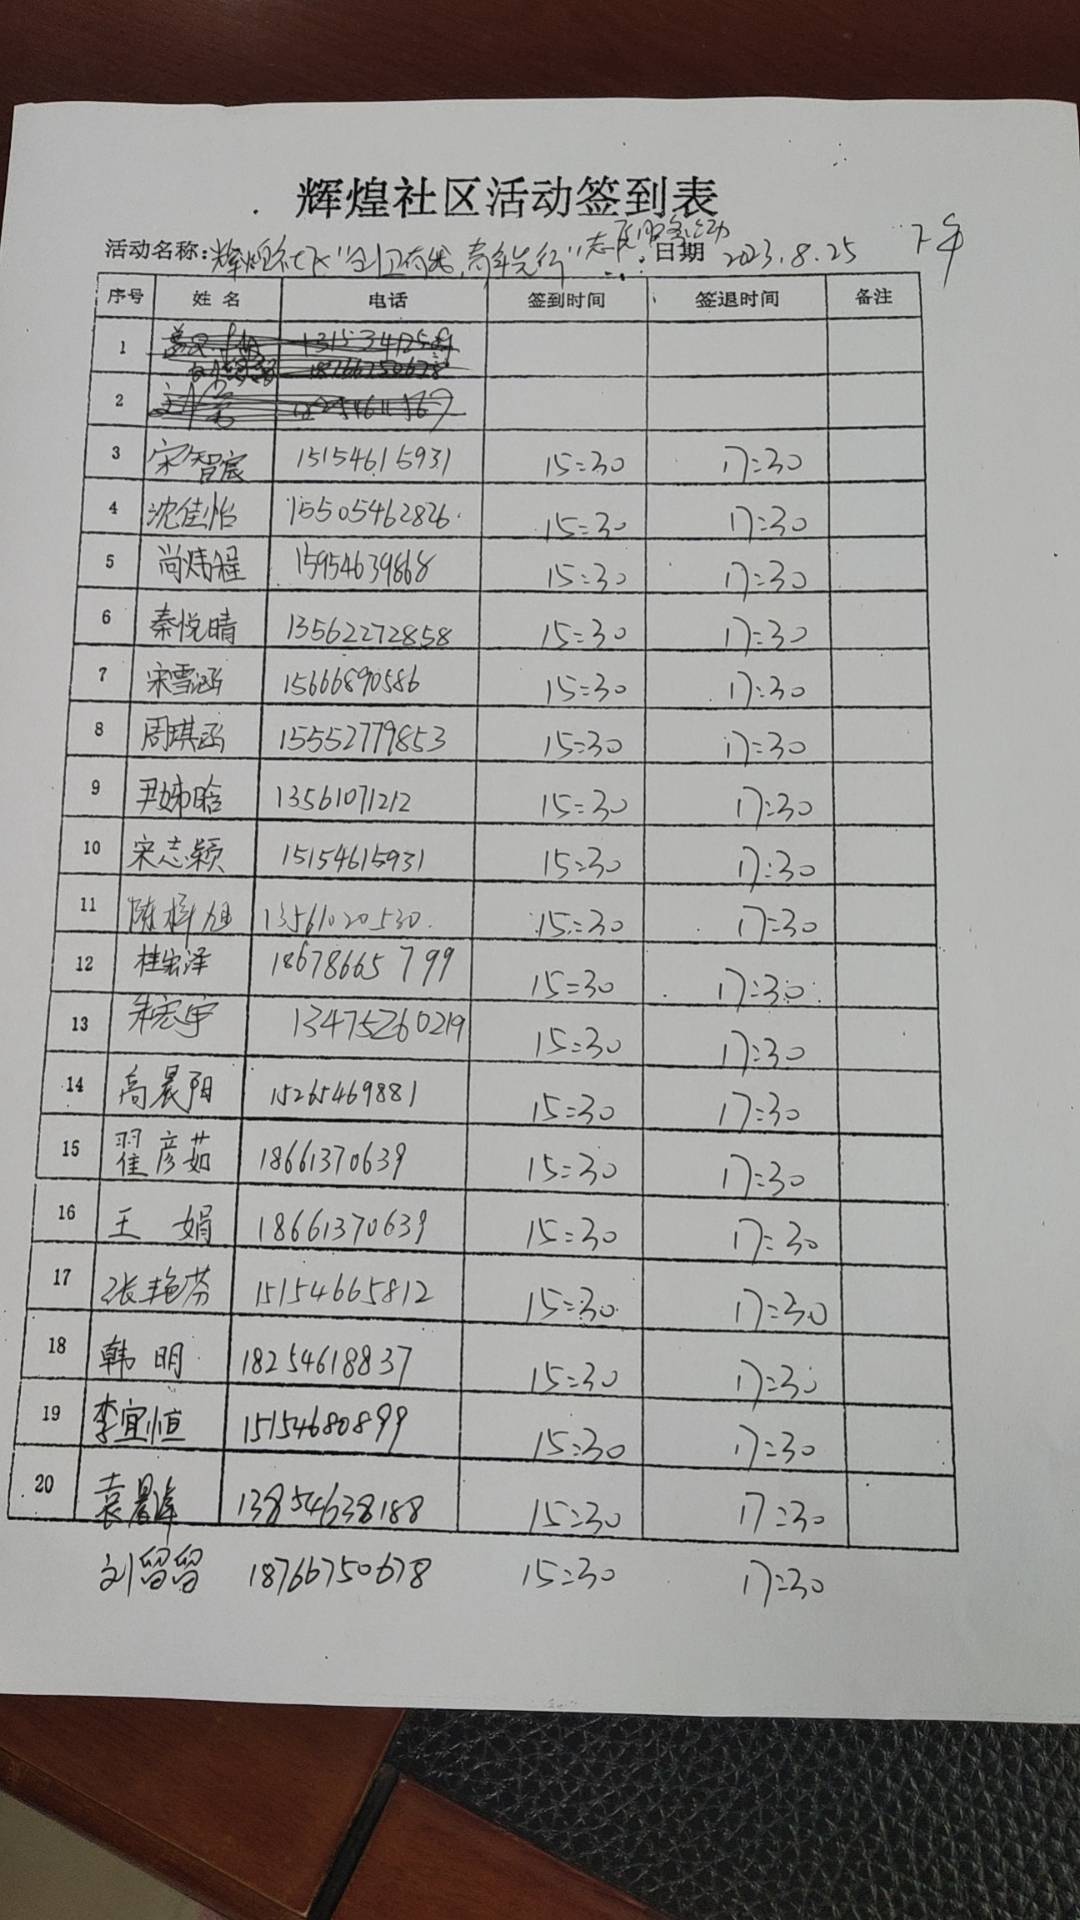 辉煌社区活动签到表
活动名称:辉煌社区"创卫有我,青年先行"志愿服务活动 日期 2023.8.25 下午
序号 姓名 电话 签到时间 签退时间 备注
1
2
3 宋智宸 15154615931 15:30 17:30
4 沈佳怡 15505462826 15:30 17:30
5 尚炜程 15954639868 15:30 17:30
6 秦悦晴 13562272858 15:30 17:30
7 宋雪涵 15666890586 15:30 17:30
8 周琪函 15552779853 15:30 17:30
9 尹姊晗 13561071212 15:30 17:30
10 宋志颖 15154615931 15:30 17:30
11 陈梓旭 13561020530 15:30 17:30
12 桂宏泽 18678665799 15:30 17:30
13 朱宏宇 13475260219 15:30 17:30
14 高晨阳 15265469881 15:30 17:30
15 翟彦茹 18661370639 15:30 17:30
16 王娟 18661370639 15:30 17:30
17 张艳芬 15154665812 15:30 17:30
18 韩明 18254618837 15:30 17:30
19 李宜恒 15154680899 15:30 17:30
20 袁晨峰 13854638188 15:30 17:30
刘留留 18766750678 15:30 17:30